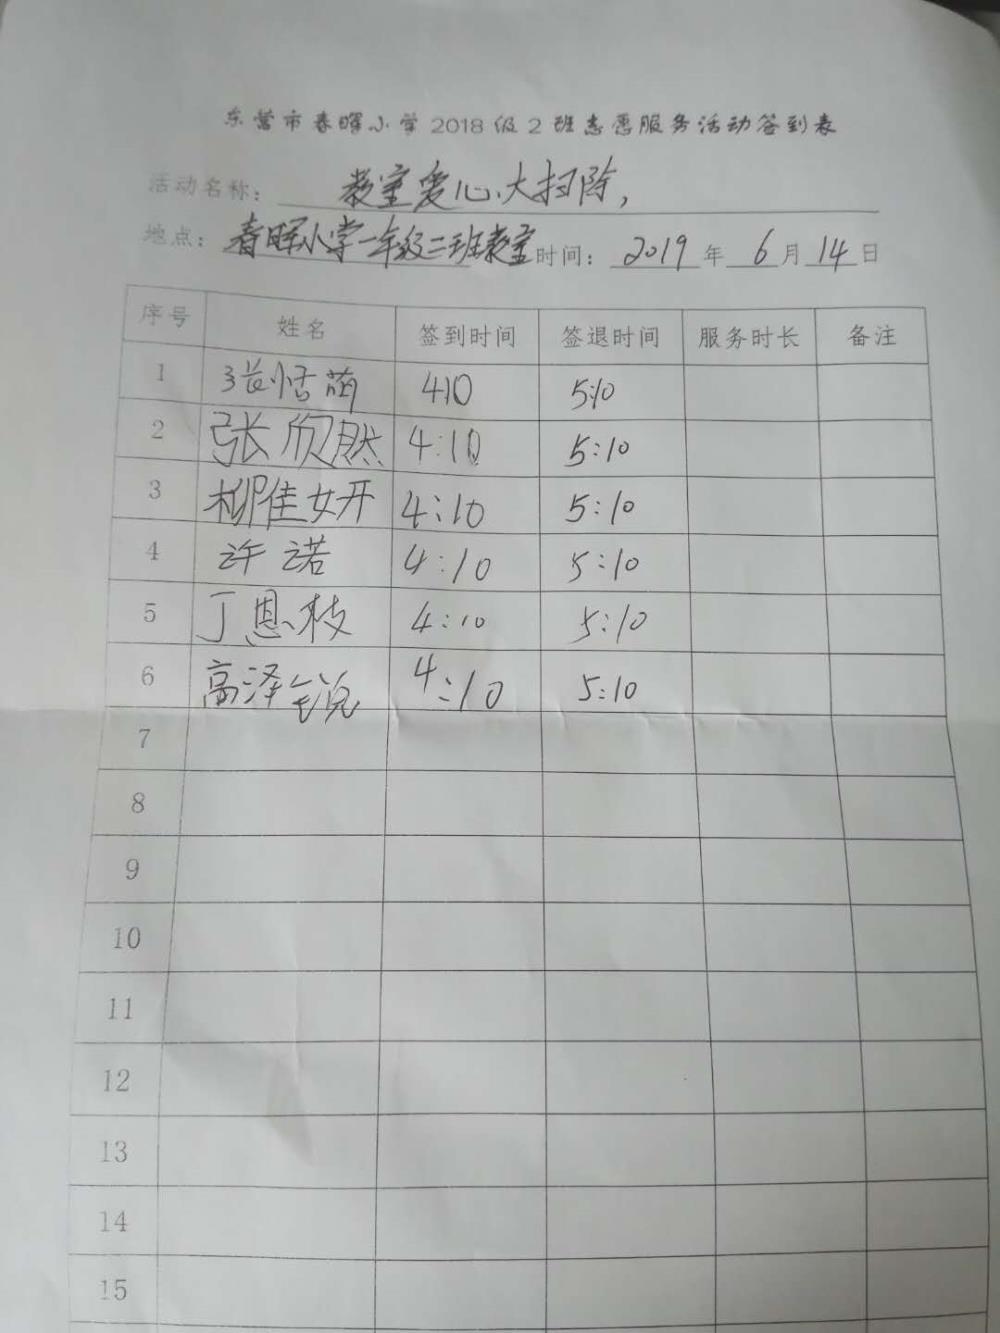 东营市春晖小学2018级2班志愿服务活动签到表
活动名称： 教室爱心大扫除，
地点：春晖小学一年级二班教室 时间： 2019 年 6 月 14 日
序号 姓名 签到时间 签退时间 服务时长 备注
1 张恬萌 4:10 5:10
2 张欣然 4:10 5:10
3 柳佳妍 4:10 5:10
4 许诺 4:10 5:10
5 丁恩枝 4:10 5:10
6 高泽锐 4:10 5:10
7
8
9
10
11
12
13
14
15